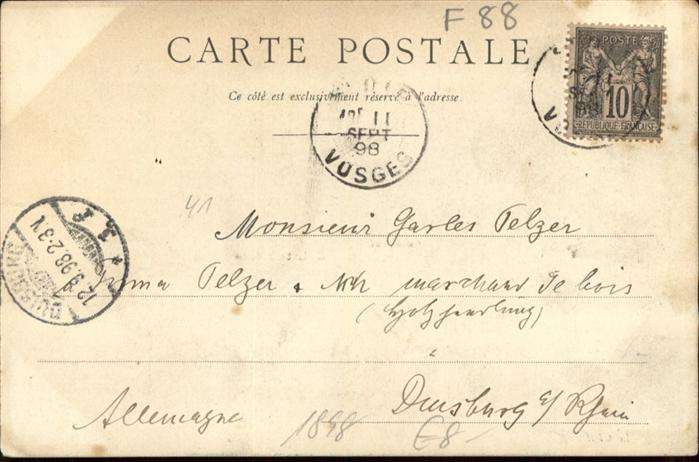 F 88
CARTE POSTALE
Ce côté est exclusivement réservé à l'adresse.
POSTE
10
RÉPUBLIQUE FRANÇAISE
11
SEPT
98
VOSGES
41
12.9.98 2-3 N
Monsieur Carles Pelzer
Pelzer & marchand de bois
(Holzhandlung)
à
Duisburg a/ Rhein
Allemagne
1898
€8-